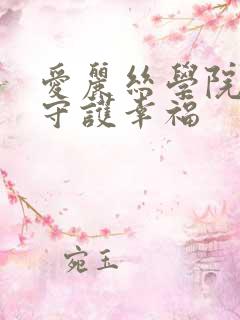 愛麗絲學院
守護幸福
宛玉